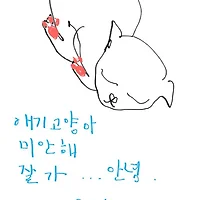 애기고양아
미안해
잘가 ...안녕.